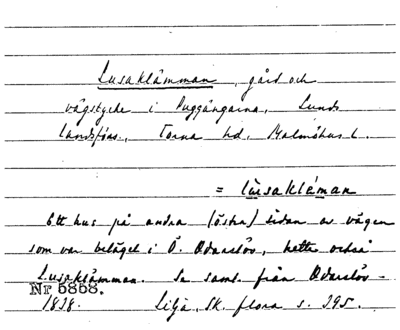 Lusaklämman, gård och
vägstycke i Puggängarna, Lunds
landsförs., Torna hd. Malmöhus l.
= lusaklåman
Ett hus på andra (östra) sidan av vägen
som var beläget i Ö. Odarslöv, hette också
Lusaklämman. Se saml. från Odarslöv –
Nr 5858.
1828. Lilja, Sk. flora s. 295.